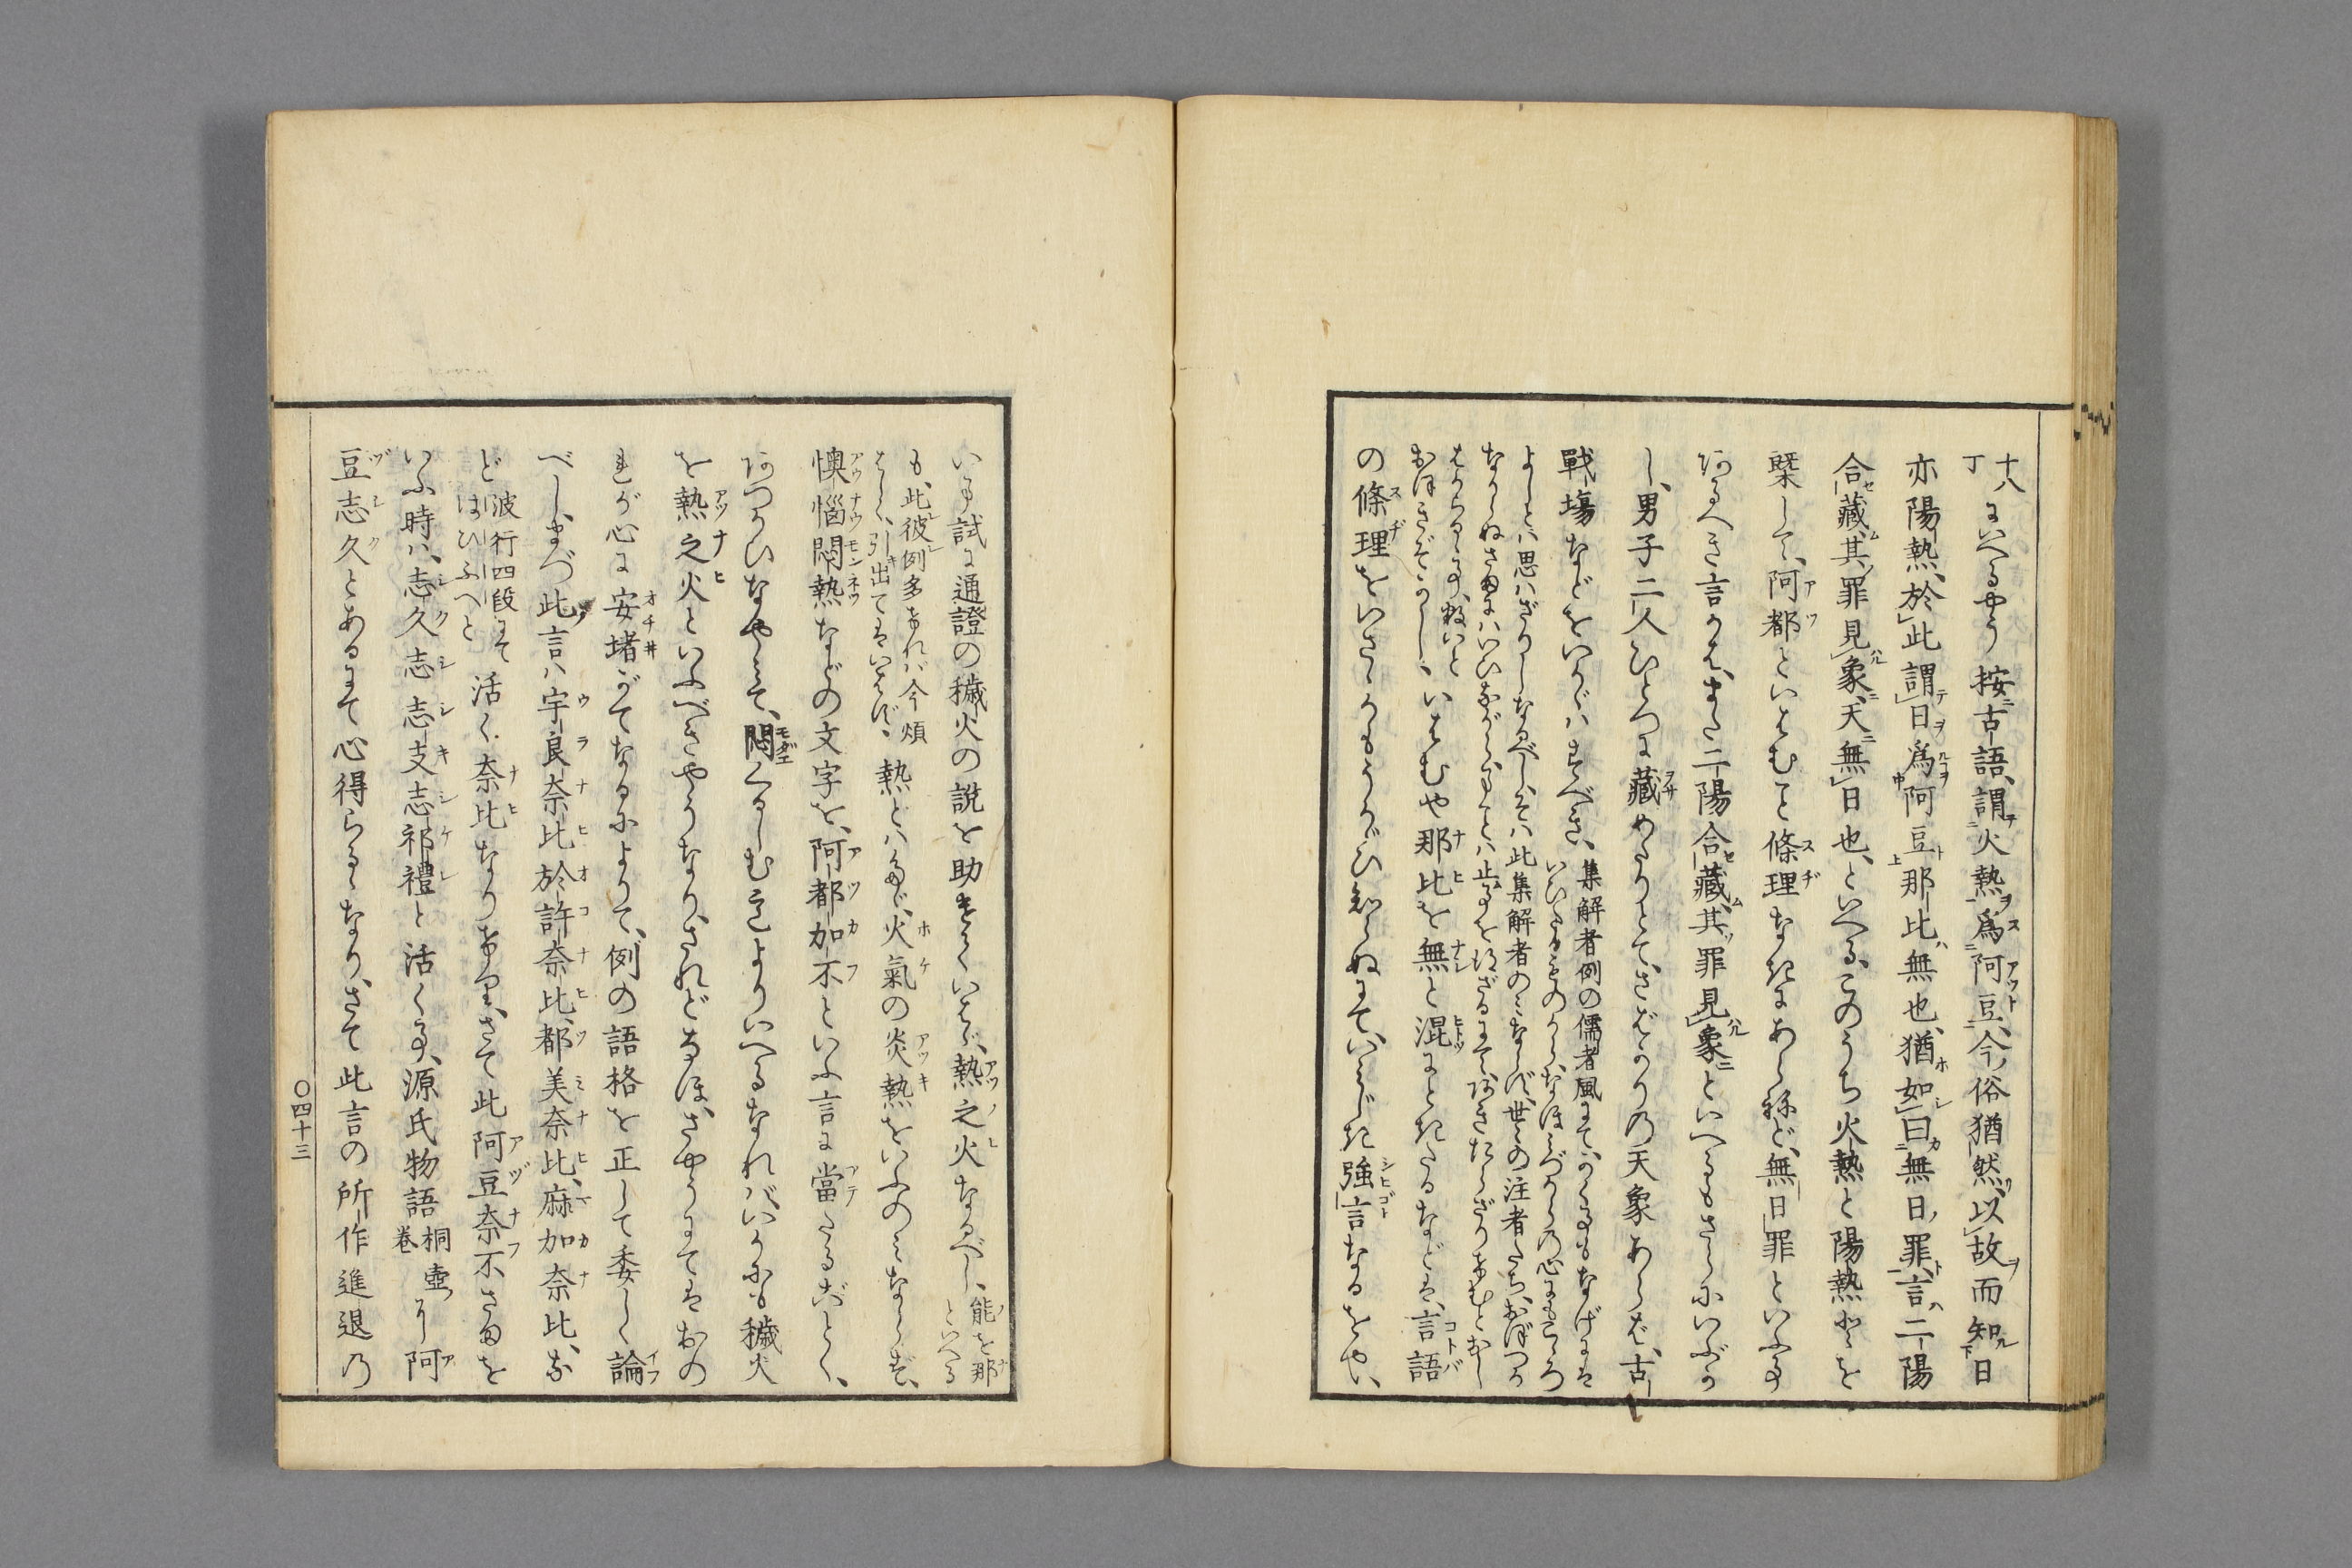 十八丁にいへるやう按古語、謂火熱爲阿豆、今俗猶然、以故而知日
亦陽熱、於此謂日爲阿豆那比無也、猶如曰無日、罪言、二陽
合藏、其罪見象、天無日也、といへる、このうち火熱と陽熱とを
槩して、阿都といはむこと條理なきにあらねど、無日罪といふ事
あるへき言かは、また二陽合藏、其罪見象といへるもさらにいぶか
し、男子二人ひとつに藏めたりとて、さばかりの天象あらば、古
戰塲などをいかゞはすべき、集解者例の儒者風にて、かくるもなげには
いひたるものから、なほみづからの心にもこゝろ
よしとは思はざりしなるべし、そは此集解者のみならず、世々の注者たち、おぼつか
なからぬさまにはいひながら、ことは止事を得ざるにて、あきたらざりけむとおし
はからるゝ事、數いと
おほきぞかし、いはむや那比を無と混にときたるなどは、言語
の條理をいさゝかもうかゞひ知らぬにて、いみじき強言なるをや、
いま試に通證の穢火の説を助けていはゞ、熱之火なるべし、能を那
といへる
も、此彼例多かれば今煩
はしく、引出てはいはず、熱とはたゞ、火氣の炎熱をいふのみならず、
懊惱悶熱などの文字を、阿都加不といふ言に當たるごとく、
あつかひなやみて、悶くるしむ意よりいへるなれば、いかにも穢火
を熱之火といふべきやうなり、されどなほ、さやうにてはおの
れが心に安堵がてなるによりて、例の語格を正して委しく論
べし、まづ此言は宇良奈比於許奈比、都美奈比、麻加奈比、な
ど波行四段にて
はひふへと活く奈比なりけり、さて此阿豆奈不さまを
いふ時は、志久志志支志祁禮と活く事、源氏物語桐壺
卷に阿
豆志久とあるにて心得らるゝなり、さて此言の所作進退の
〇四十三